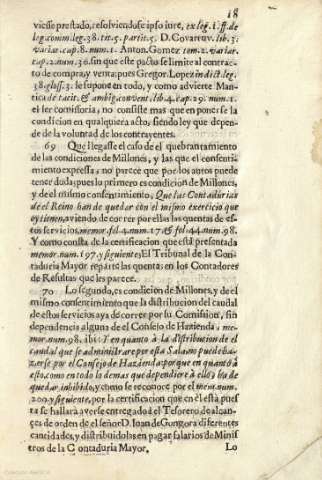 18
viesse prestado, resolviendose ipso iure, ex leg. 1. ff. de
leg. comm. leg. 38. tit. 5. partit. 5. D. Covarruv. lib. 3.
variar. cap. 8. num. 1. Anton. Gomez tom. 2. variar.
cap. 2. num. 36. sin que este pacto se limite al contrac-
to de compra, y venta, pues Gregor. Lopez in dict. leg.
38. gloss. 3. le supone en todo, y como advierte Man-
tica de tacit. & ambig. convent. lib. 4. cap. 29. num. 1.
el ser comissoria, no consiste mas que en ponerse la
condicion en qualquiera acto, siendo ley que depen-
de de la voluntad de los contrayentes.
69 Que llegasse el caso de el quebrantamiento
de las condiciones de Millones, y las que el consenti-
miento expressa, no parece que por los autos puede
tener duda, pues lo primero es condicion de Millones,
y de el mismo consentimiento, Que las Contadurias
de el Reino han de quedar con el mismo exercicio que
oy tienen, aviendo de correr por ellas las quentas de es-
tos servicios, memor. fol. 4. num. 17. & fol. 44. num. 98.
Y como consta de la certificacion que està presentada
memor. num. 197. y siguientes, El Tribunal de la Con-
taduria Mayor reparte las quentas en los Contadores
de Resultas que les parece.
70 Lo segundo, es condicion de Millones, y de el
mismo consentimiento que la distribucion del caudal
de estos servicios aya de correr por su Comision, sin
dependencia alguna de el Consejo de Hazienda, me-
mor. num. 98. ibi: Y en quanto à la distribucion de el
caudal que se administrare por esta Sala no puede ha-
zerse por el Consejo de Hazienda: porque en quanto à
esto, como en todo lo demas que dependiere à ellos ha de
quedar inhibido, y como se reconoce por el mem. num.
200. y siguiente, por la certificacion que en èl està pues-
ta se hallarà averse entregado à el Tesorero de alcan-
ces de orden de el señor D. Ioan de Gongora diferentes
cantidades, y distribuidolas en pagar salarios de Minis-
tros de la Contaduria Mayor.
Lo